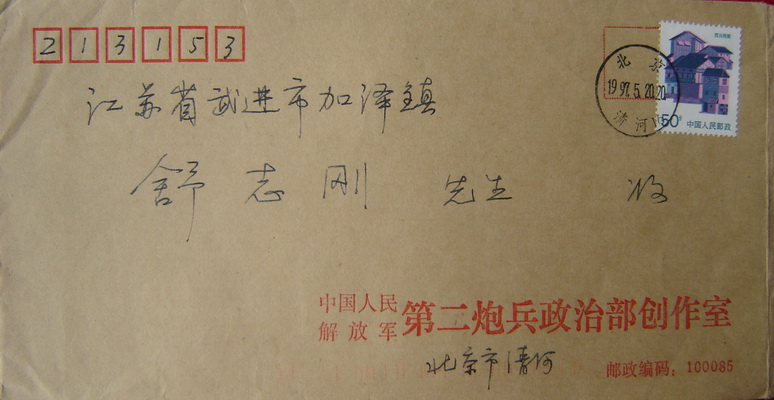 213153
北京
1997.5.20.20
清河
50分
中国人民邮政
江苏省武进市加泽镇
舒志刚 先生 收
中国人民
解放军 第二炮兵政治部创作室
北京市清河
邮政编码：100085